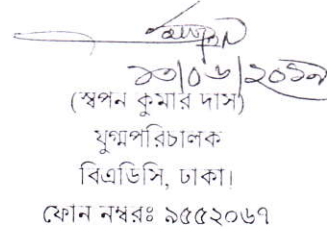 ২৩/০৬/২০১৯
(স্বপন কুমার দাস)
যুগ্মপরিচালক
বিএডিসি, ঢাকা।
ফোন নম্বরঃ ৯৫৫২০৬৭